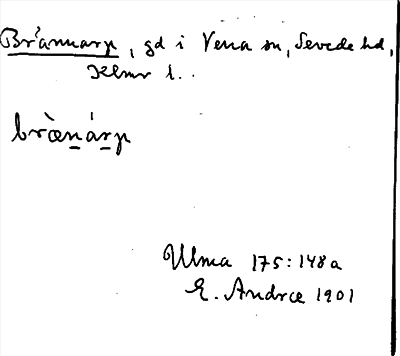 Brånnarp, gd i Vena sn, Sevede hd,
Klmr l.
brænárp
Ulma 175:148a
E. Andræ 1901